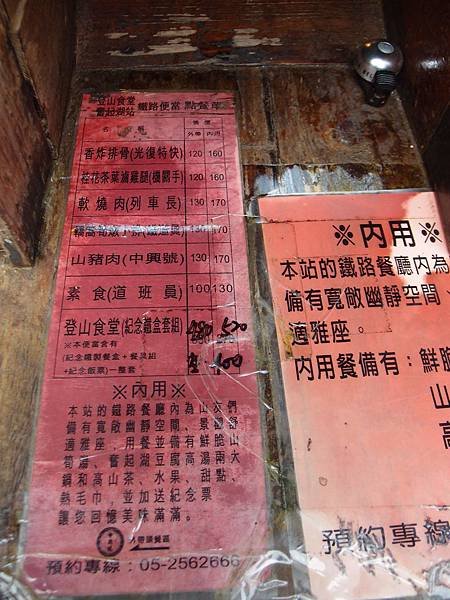 登山食堂
奮起湖站 鐵路便當 點餐單
售價
外帶 內用
香炸排骨(光復特快) 120 160
桂花茶葉滷雞腿(機關手) 120 160
軟燒肉(列車長) 130 170
170
山豬肉(中興號) 130 170
素食(道班員) 100 130
登山食堂(紀念鐵盒套組)
※本便當含有
(紀念鐵製餐盒+餐具組
+紀念飯票)一整套
※內用※
本站的鐵路餐廳內為山友們
備有寬敞幽靜空間、景觀舒
適雅座,用餐並備有鮮脆山
筍湯、奮起湖豆腐高湯兩大
鍋和高山茶、水果、甜點、
熱毛巾,並加送紀念票
讓您回憶美味滿滿。
外帶領餐區
預約專線:05-2562666
※內用※
本站的鐵路餐廳內為
備有寬敞幽靜空間、
適雅座。
內用餐備有:鮮脆
山
高
預約專線